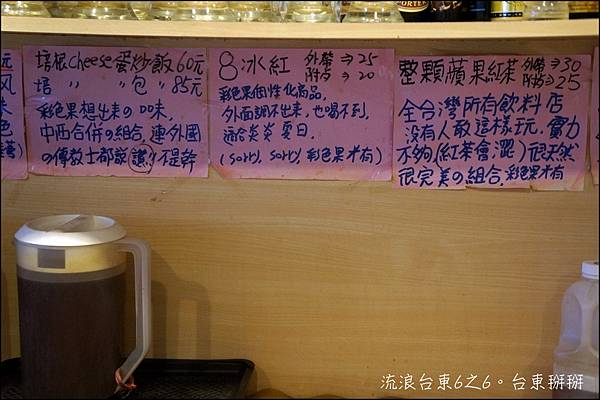 元
风
味
色
培根cheese蛋炒飯 60元
培 〃 〃 〃包〃 85元
彩色果想出來の口味,
中西合併の組合,連外國
の傳教士都說讚!不是蓋
8冰紅 外帶⇒25
附点⇒20
彩色果個性化商品,
外面調不出來,也喝不到,
適合炎炎夏日.
(sorry, sorry, 彩色果才有)
整顆蘋果紅茶 外帶⇒30
附点⇒25
全台灣所有飲料店
沒有人敢這樣玩.實力
不夠(紅茶會澀)很天然
很完美の組合.彩色果才有
流浪台東6之6。台東掰掰